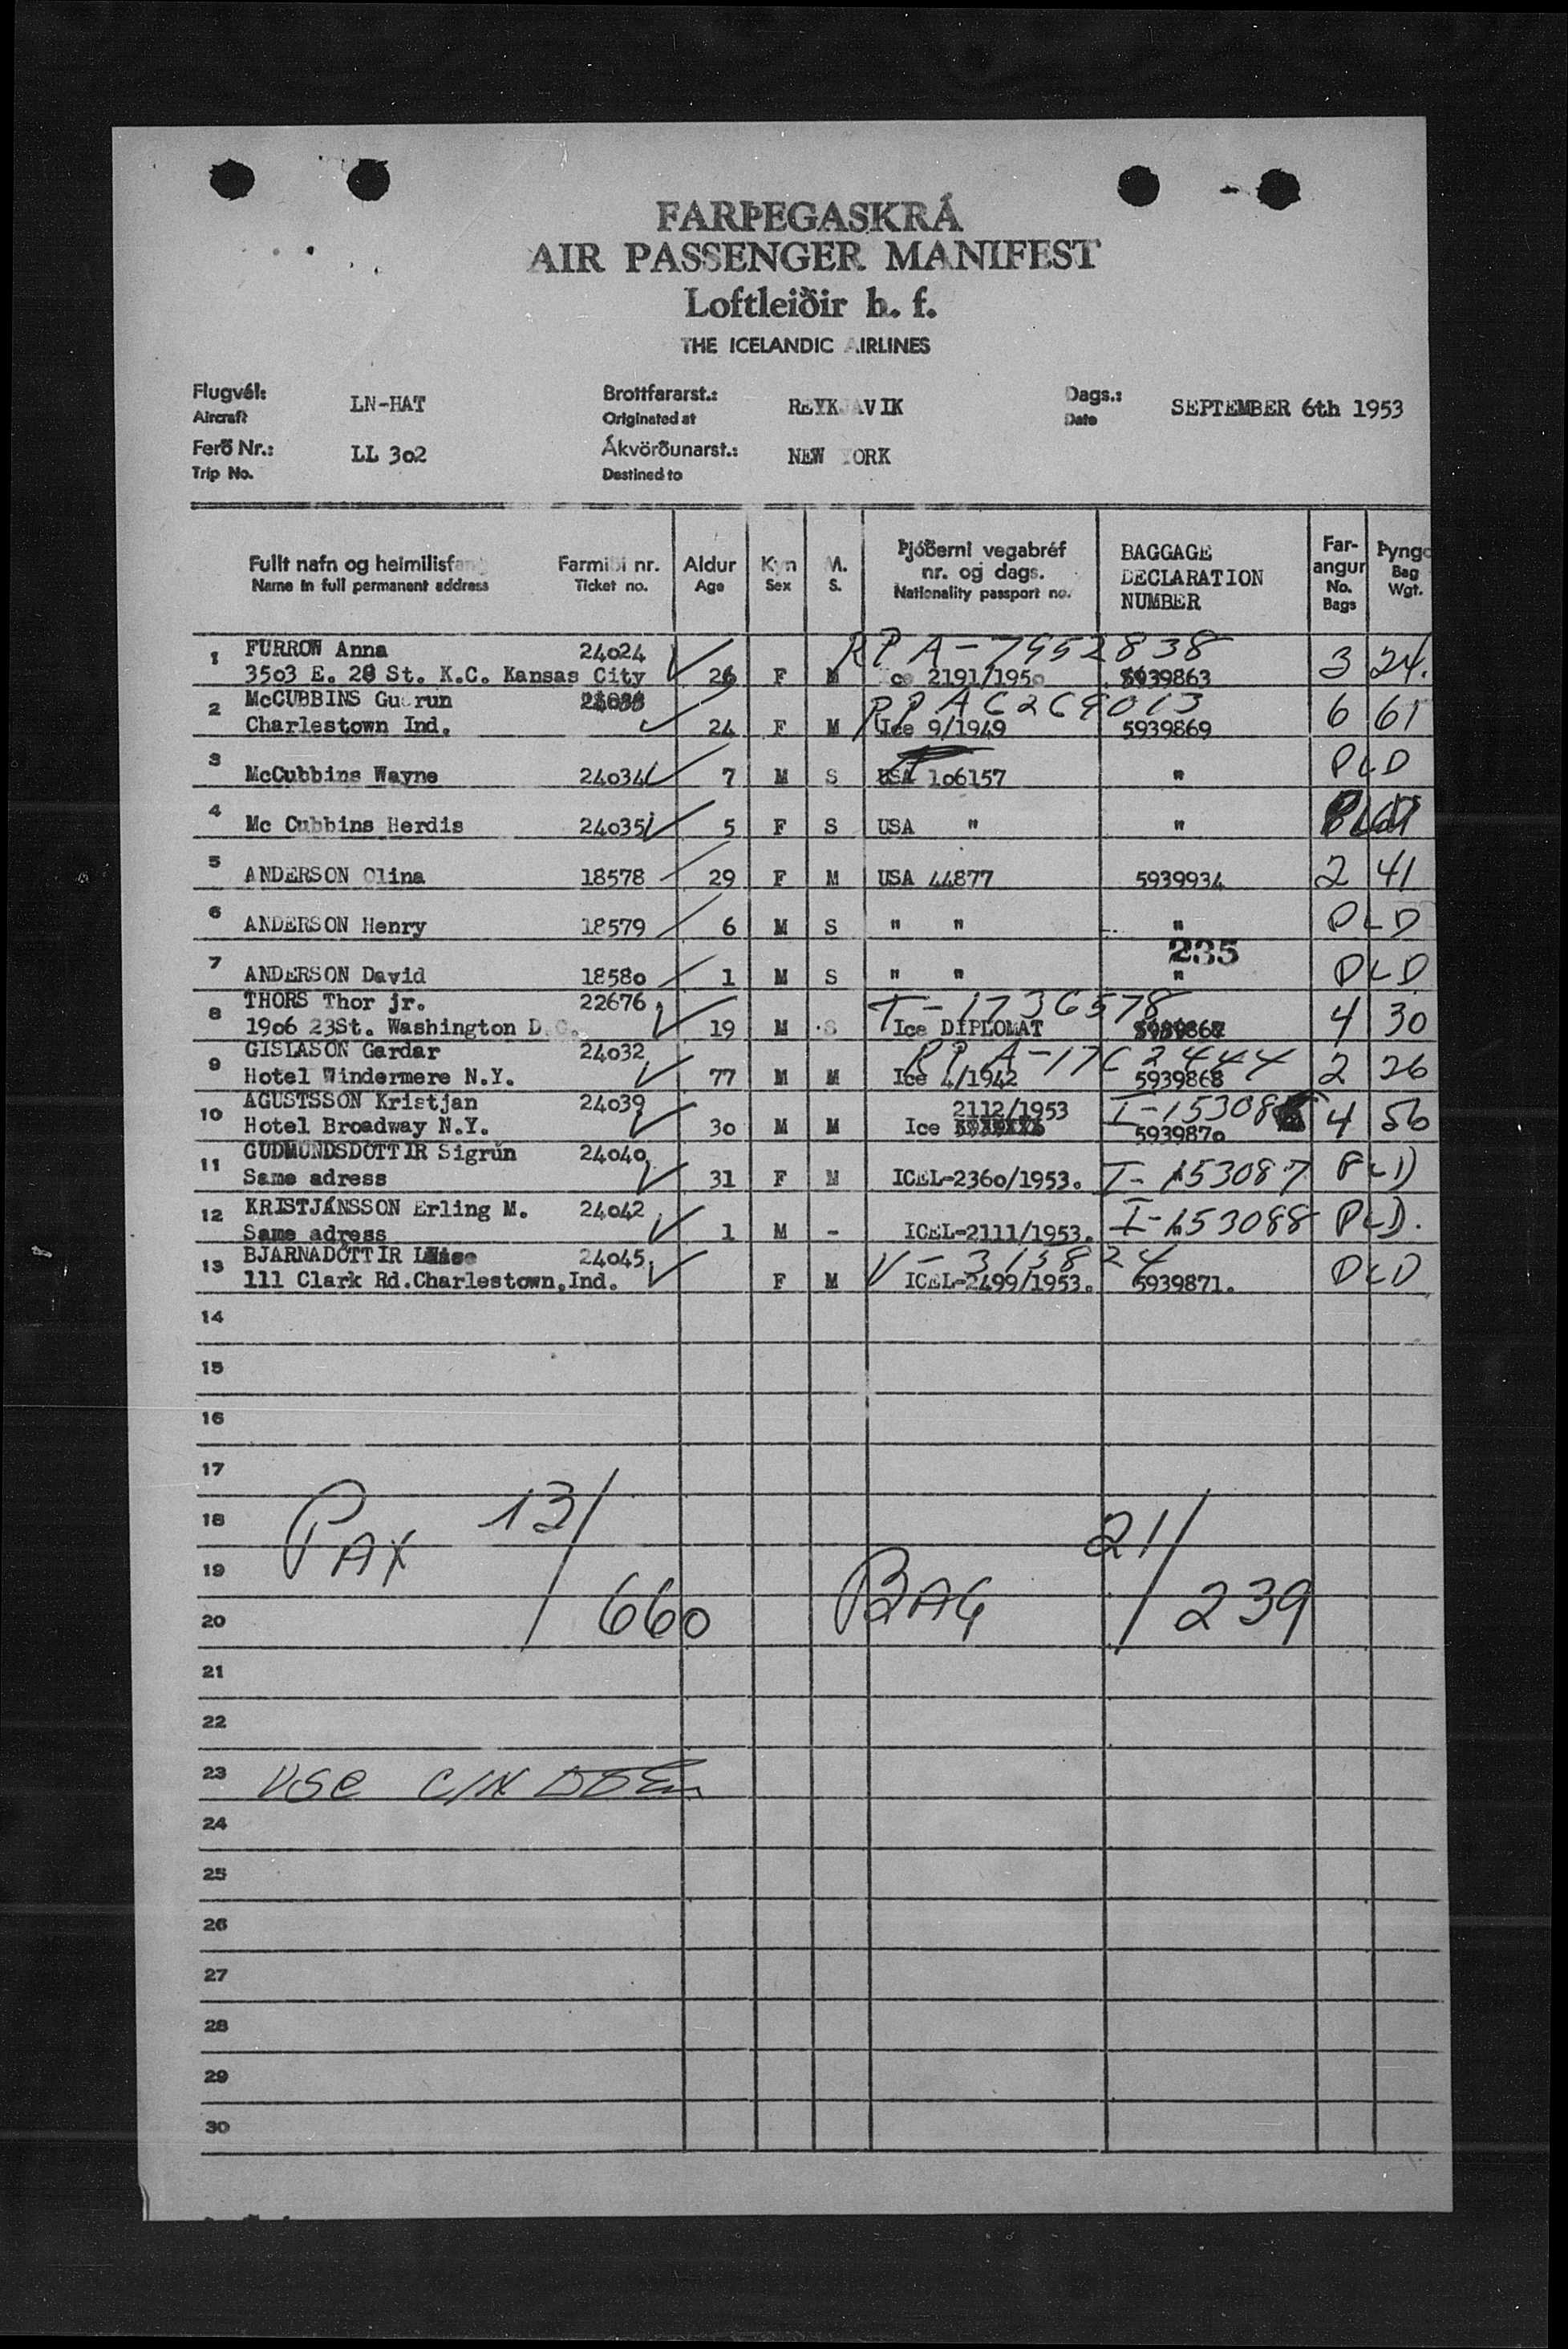 FARÞEGASKRÁ
AIR PASSENGER MANIFEST
Loftleiðir h. f.
THE ICELANDIC AIRLINES
Flugvél: Aircraft LN-HAT Brottfararst.: Originated at REYKJAVIK Dags.: Date SEPTEMBER 6th 1953
Ferð Nr.: Trip No. LL 302 Ákvörðunarst.: Destined to NEW YORK
Fullt nafn og heimilisfang Farmiði nr. Aldur Kyn M. Þjóðerni vegabréf nr. og dags. BAGGAGE DECLARATION NUMBER Far-angur Þyngd
Name in full permanent address Ticket no. Age Sex S. Nationality passport no. No. Bags Bag Wgt.
1 FURROW Anna 24024 RP A-7952838
3503 E. 28 St. K.C. Kansas City 26 F M Ice 2191/1950 5939863 3 24.
2 McCUBBINS Gudrun RP A6269013
Charlestown Ind. 24 F M Ice 9/1949 5939869 6 61
3 McCubbins Wayne 24034 7 M S USA 106157 " PLD
4 Mc Cubbins Herdis 24035 5 F S USA " "
5 ANDERSON Olina 18578 29 F M USA 44877 5939934 2 41
6 ANDERSON Henry 18579 6 M S " " " PLD
235
7 ANDERSON David 18580 1 M S " " " PLD
8 THORS Thor jr. 22676 T-1736578
1906 23St. Washington D.C. 19 M S Ice DIPLOMAT 4 30
9 GISLASON Gardar 24032 RP A-1762444
Hotel Windermere N.Y. 77 M M Ice 4/1942 5939868 2 26
10 AGUSTSSON Kristjan 24039 2112/1953 I-15308
Hotel Broadway N.Y. 30 M M Ice 5939870 4 56
11 GUDMUNDSDÓTTIR Sigrún 24040
Same adress 31 F M ICEL-2360/1953. I-153087 PLD
12 KRISTJÁNSSON Erling M. 24042
Same adress 1 M - ICEL-2111/1953. I-153088 PLD.
13 BJARNADÓTTIR 24045 V-313824
111 Clark Rd.Charlestown,Ind. F M ICEL-2499/1953. 5939871. PLD
14
15
16
17
18 PAX 13/ 21/
19
20 /660 BAG /239
21
22
23
24
25
26
27
28
29
30